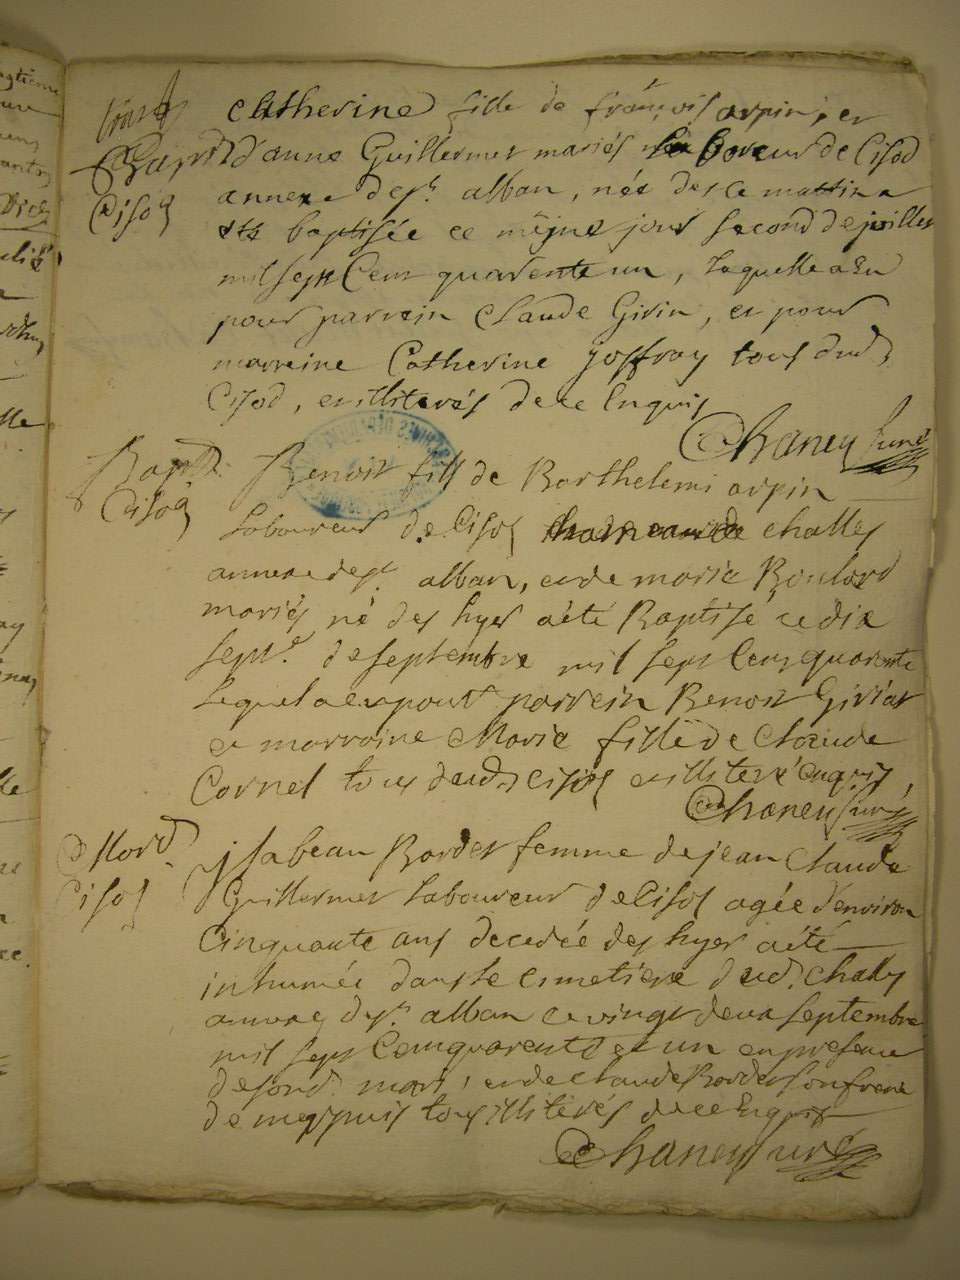 Catherine fille de françois arpin, et
Bapt d'anne Guillermet mariés laboureur de Cisod
Cisod
annexe de st alban, née des ce mattin a
été baptisée ce même jour second de juillet
mil sept Cent quarente un, laquelle a Eu
pour parrein Claude Girin, et pour
marreine Catherine Joffray tous dud
Cisod, et illiterés de ce Enquis
Chaney Curé
Bapt
Cisod
Benoit fils de Barthelemi arpin
Laboureur de Cisod challes
annexe de st alban, et de marie Boulard
mariés né des hyer a été Baptisé ce dix
sept de septembre mil sept Cent quarente
Lequel a eu pour parrein Benoit Giriat
et marraine Marie fille de Claude
Cornet tous dud Cisod et illiteré enquis,
Chaney Curé
Mort
Cisod
jsabeau Bordet femme de jean Claude
Guillermet Laboureur de Cisod agée d'environ
Cinquante ans decedée des hyer a été
inhumée dans le cimetiere dud. Challes
annexe de st alban ce vingt deux septembre
mil sept Cent quarente et un en presence
de sond mari, et de claude Bordet son frere
de tous illiterés de ce Enquis
Chaney Curé